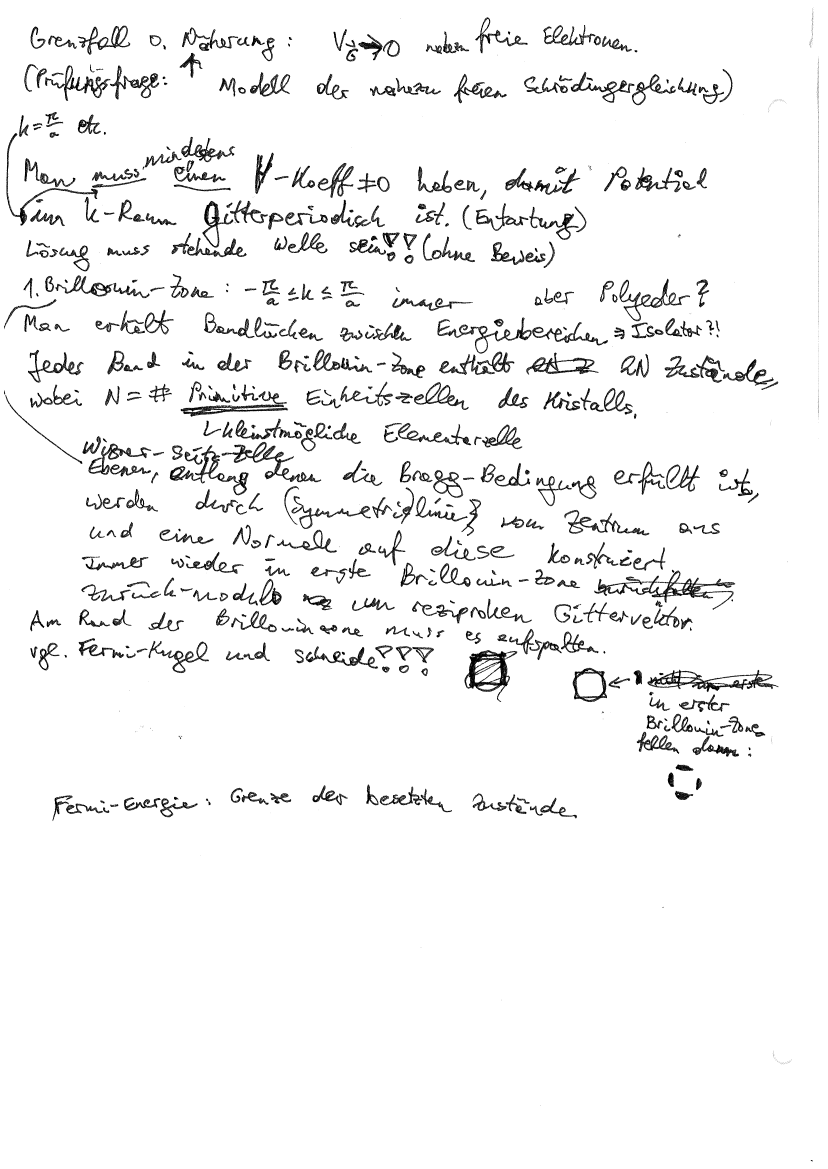 Grenzfall 0. Näherung: V_G → 0 freie Elektronen.
(Prüfungsfrage: ↑ Modell der nahezu freien Schrödingergleichung)
k = π/a etc.
mindestens
Man muss einen V-Koeff ≠ 0 haben, damit Potential
im k-Raum Gitterperiodisch ist. (Entartung)
Lösung muss stehende Welle sein!! (ohne Beweis)
1. Brillouin-Zone: -π/a ≤ k ≤ π/a immer aber Polyeder?
Man erhält Bandlücken zwischen Energiebereichen ⇒ Isolator?!
Jedes Band in der Brillouin-Zone enthält 2N Zustände,
wobei N = # Primitive Einheitszellen des Kristalls.
Kleinstmögliche Elementarzelle
Wigner-Seitz-Zelle
Ebenen, entlang denen die Bragg-Bedingung erfüllt ist,
werden durch (Symmetrie)linie vom Zentrum aus
und eine Normale auf diese konstruiert
Immer wieder in erste Brillouin-Zone
zurück-modulo um reziproken Gittervektor.
Am Rand der Brillouinzone muss es aufspalten.
vgl. Fermi-Kugel und schneide!!!
←
in erster
Brillouin-Zone
fehlen dann:
Fermi-Energie: Grenze der besetzten Zustände